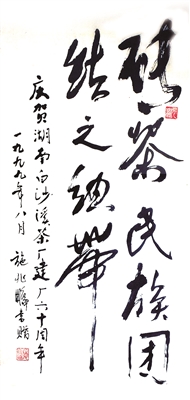 砖茶民族团
结之纽带
庆贺湖南白沙溪茶厂建厂六十周年
一九九九年八月 施兆鹏书赠